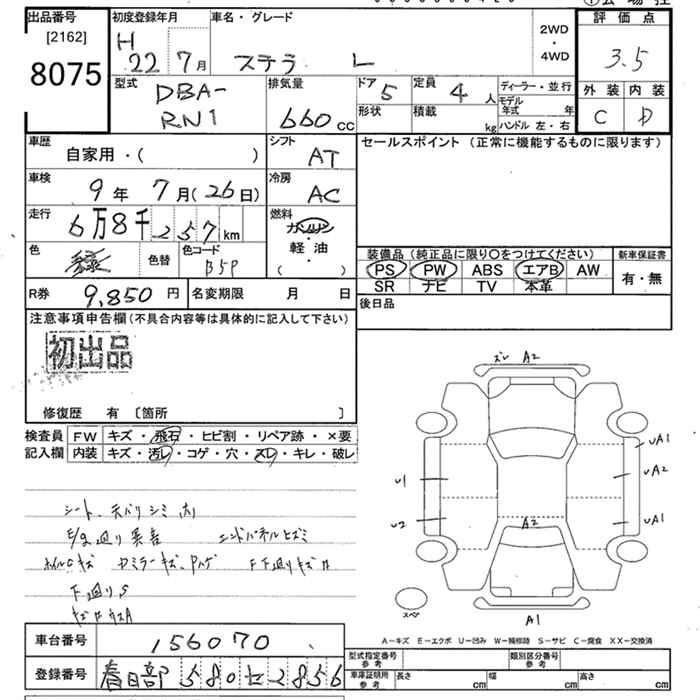 出品番号
[2162]
8075
初度登録年月
H 22 7月
車名・グレード
ステラ L
2WD
・
4WD
評価点
3.5
外装 内装
C D
型式
DBA-
RN1
排気量
660 cc
ドア 5
形状
定員 4 人
積載 kg
ディーラー・並行
モデル年式 年
ハンドル 左・右
車歴
自家用・( )
シフト
AT
セールスポイント (正常に機能するものに限ります)
車検
9年 7月(26日)
冷房
AC
走行
6万8千257km
燃料
ガソリン
・
軽油
・
( )
色
緑
色替
色コード
B5P
装備品 (純正品に限り○をつけてください) 新車保証書
PS PW ABS エアB AW
SR ナビ TV 本革
有・無
R券 9,850円 名変期限 月 日
後日品
注意事項申告欄(不具合内容等は具体的に記入して下さい)
初出品
修復歴 有 〔箇所 〕
検査員 FW キズ・飛石・ヒビ割・リペア跡・×要
記入欄 内装 キズ・汚レ・コゲ・穴・スレ・キレ・破レ
ズレ A2
UA1
UA2
UA1
U1
U2
A2
A1
スペア
シート、天バリシミ
E/g廻り異音 エンドパネルヒズミ
ホイルCキズ
下廻りS
A－キズ E－エクボ U－凹み W－補修跡 S－サビ C－腐食 XX－交換済
車台番号 156070
登録番号 春日部 580 に 2856
型式指定番号 参考
類別区分番号 参考
車庫証明用 参考 長さ cm 幅 cm 高さ cm